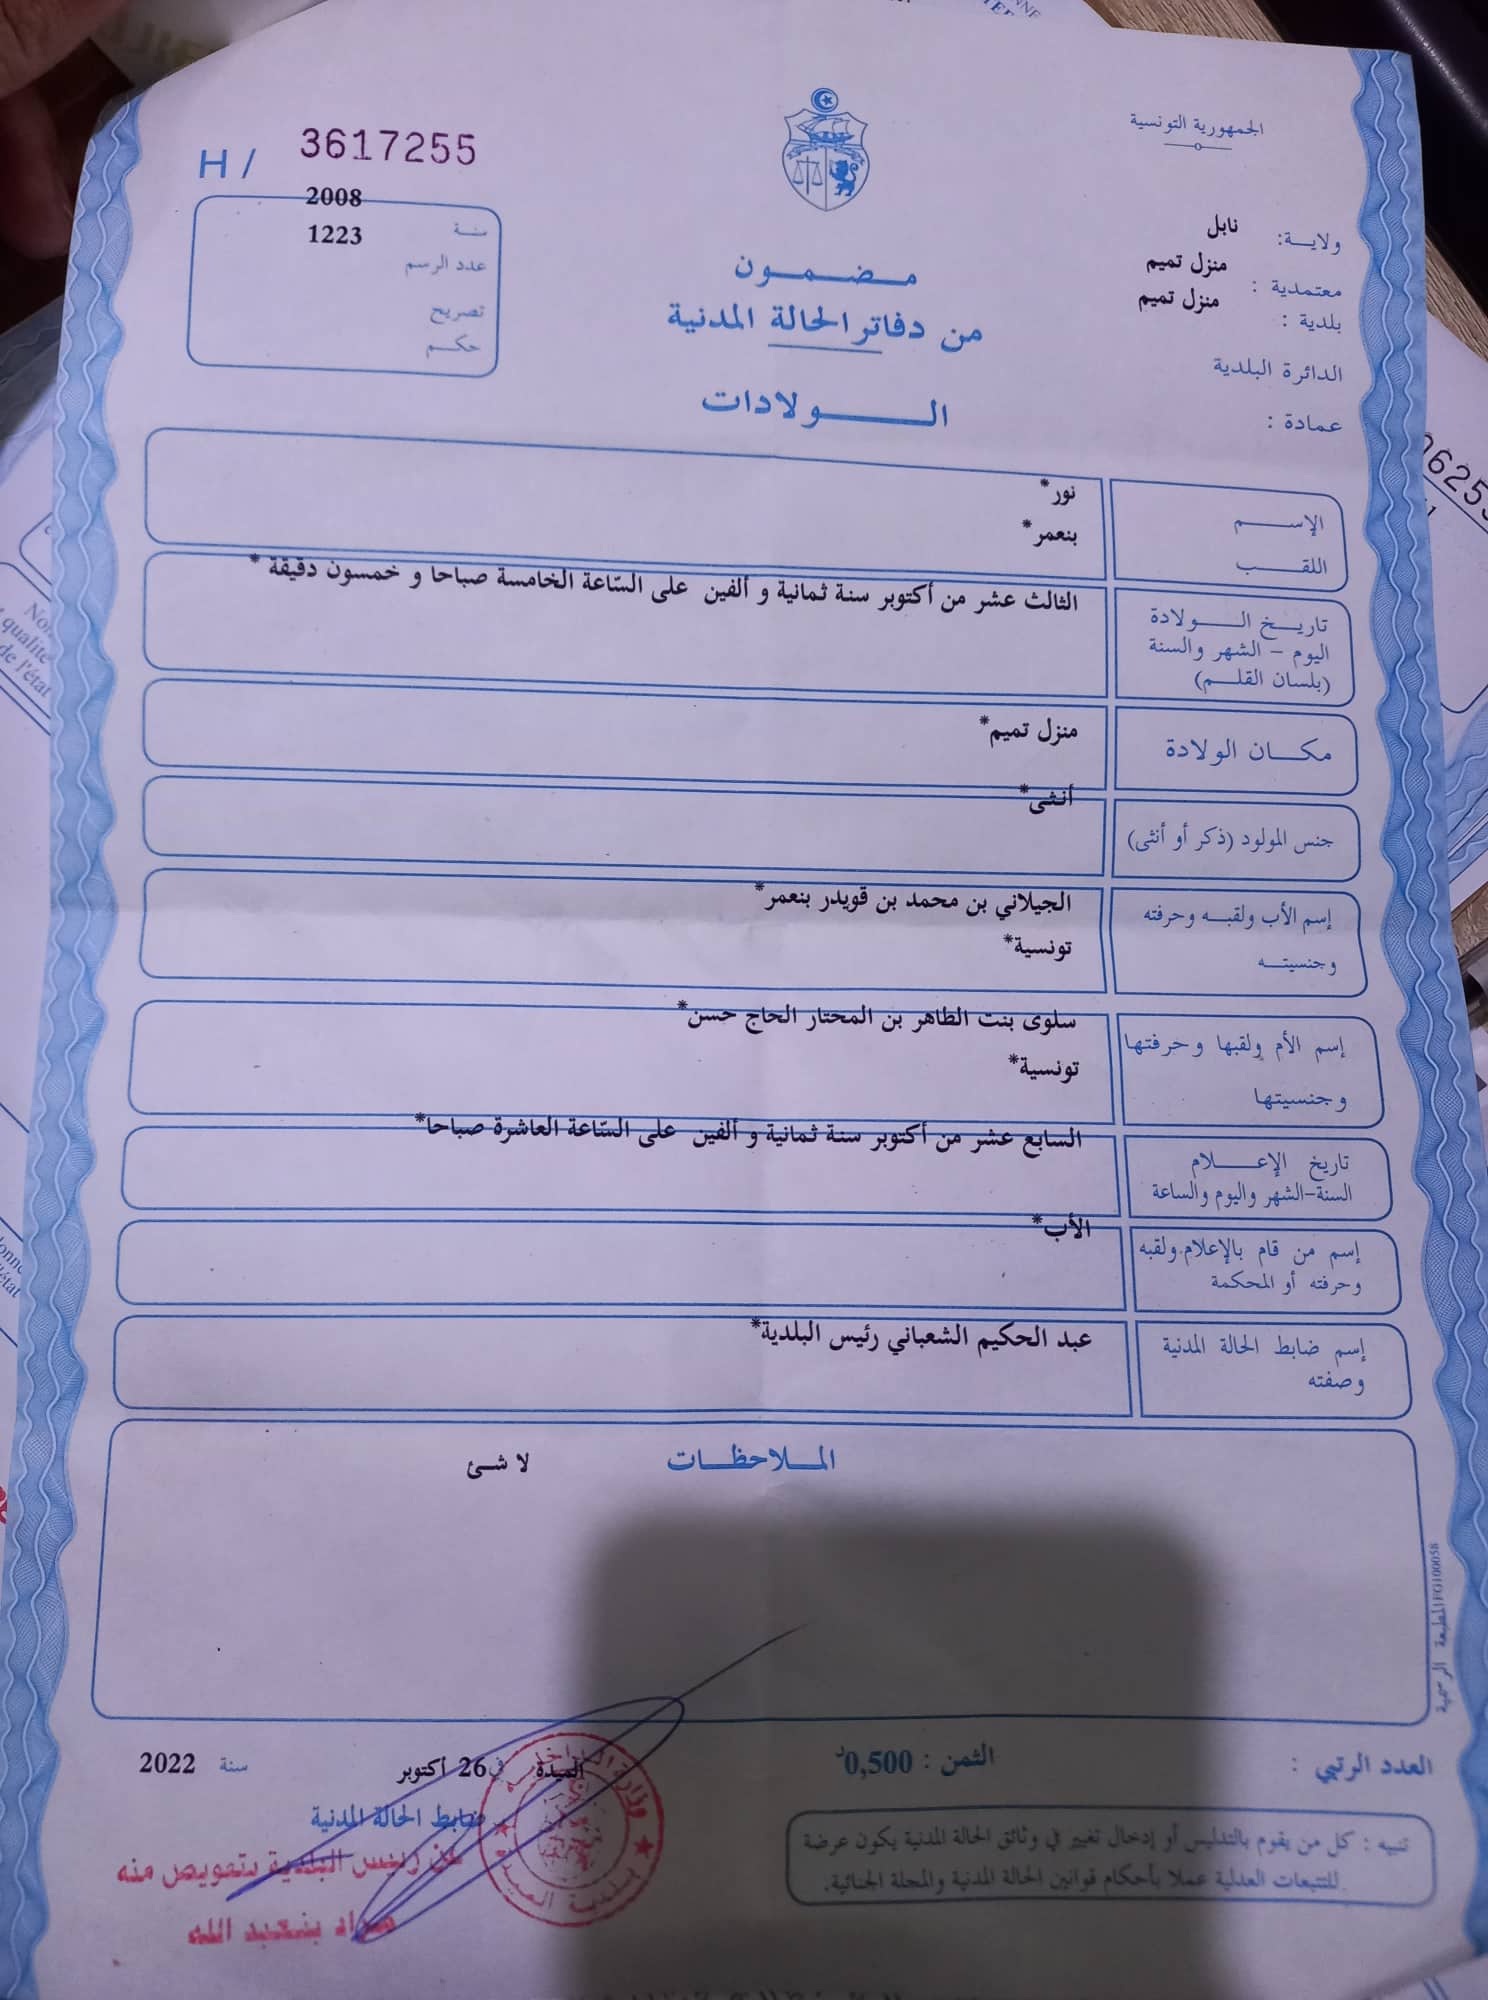 الجمهورية التونسية
H / 3617255
2008
سنة
1223
عدد الرسم
تصريح
حكم
ولاية: نابل
معتمدية : منزل تميم
بلدية : منزل تميم
الدائرة البلدية
عمادة :
مضمون
من دفاتر الحالة المدنية
الولادات
الإسم نور*
اللقب بنعمر*
تاريخ الولادة الثالث عشر من أكتوبر سنة ثمانية و ألفين على السّاعة الخامسة صباحا و خمسون دقيقة *
اليوم - الشهر والسنة
(بلسان القلم)
مكان الولادة منزل تميم*
أنثى*
جنس المولود (ذكر أو أنثى)
إسم الأب ولقبه وحرفته الجيلاني بن محمد بن قويدر بنعمر*
وجنسيته تونسية*
إسم الأم ولقبها وحرفتها سلوى بنت الطاهر بن المختار الحاج حسن*
وجنسيتها تونسية*
تاريخ الإعلام السابع عشر من أكتوبر سنة ثمانية و ألفين على السّاعة العاشرة صباحا*
السنة-الشهر واليوم والساعة
إسم من قام بالإعلام.ولقبه الأب*
وحرفته أو المحكمة
إسم ضابط الحالة المدنية عبد الحكيم الشعباني رئيس البلدية*
وصفته
الملاحظات لا شئ
المطبعة الرسمية
العدد الرتبي : الثمن : 0,500د
الميدة في 26 أكتوبر سنة 2022
ضابط الحالة المدنية
عن رئيس البلدية بتفويض منه
مراد بنعبد الله
تنبيه : كل من يقوم بالتدليس أو إدخال تغيير في وثائق الحالة المدنية يكون عرضة
للتتبعات العدلية عملا بأحكام قوانين الحالة المدنية والمجلة الجنائية.
وزارة الداخلية
بلدية الميدة
qualité
de l'état